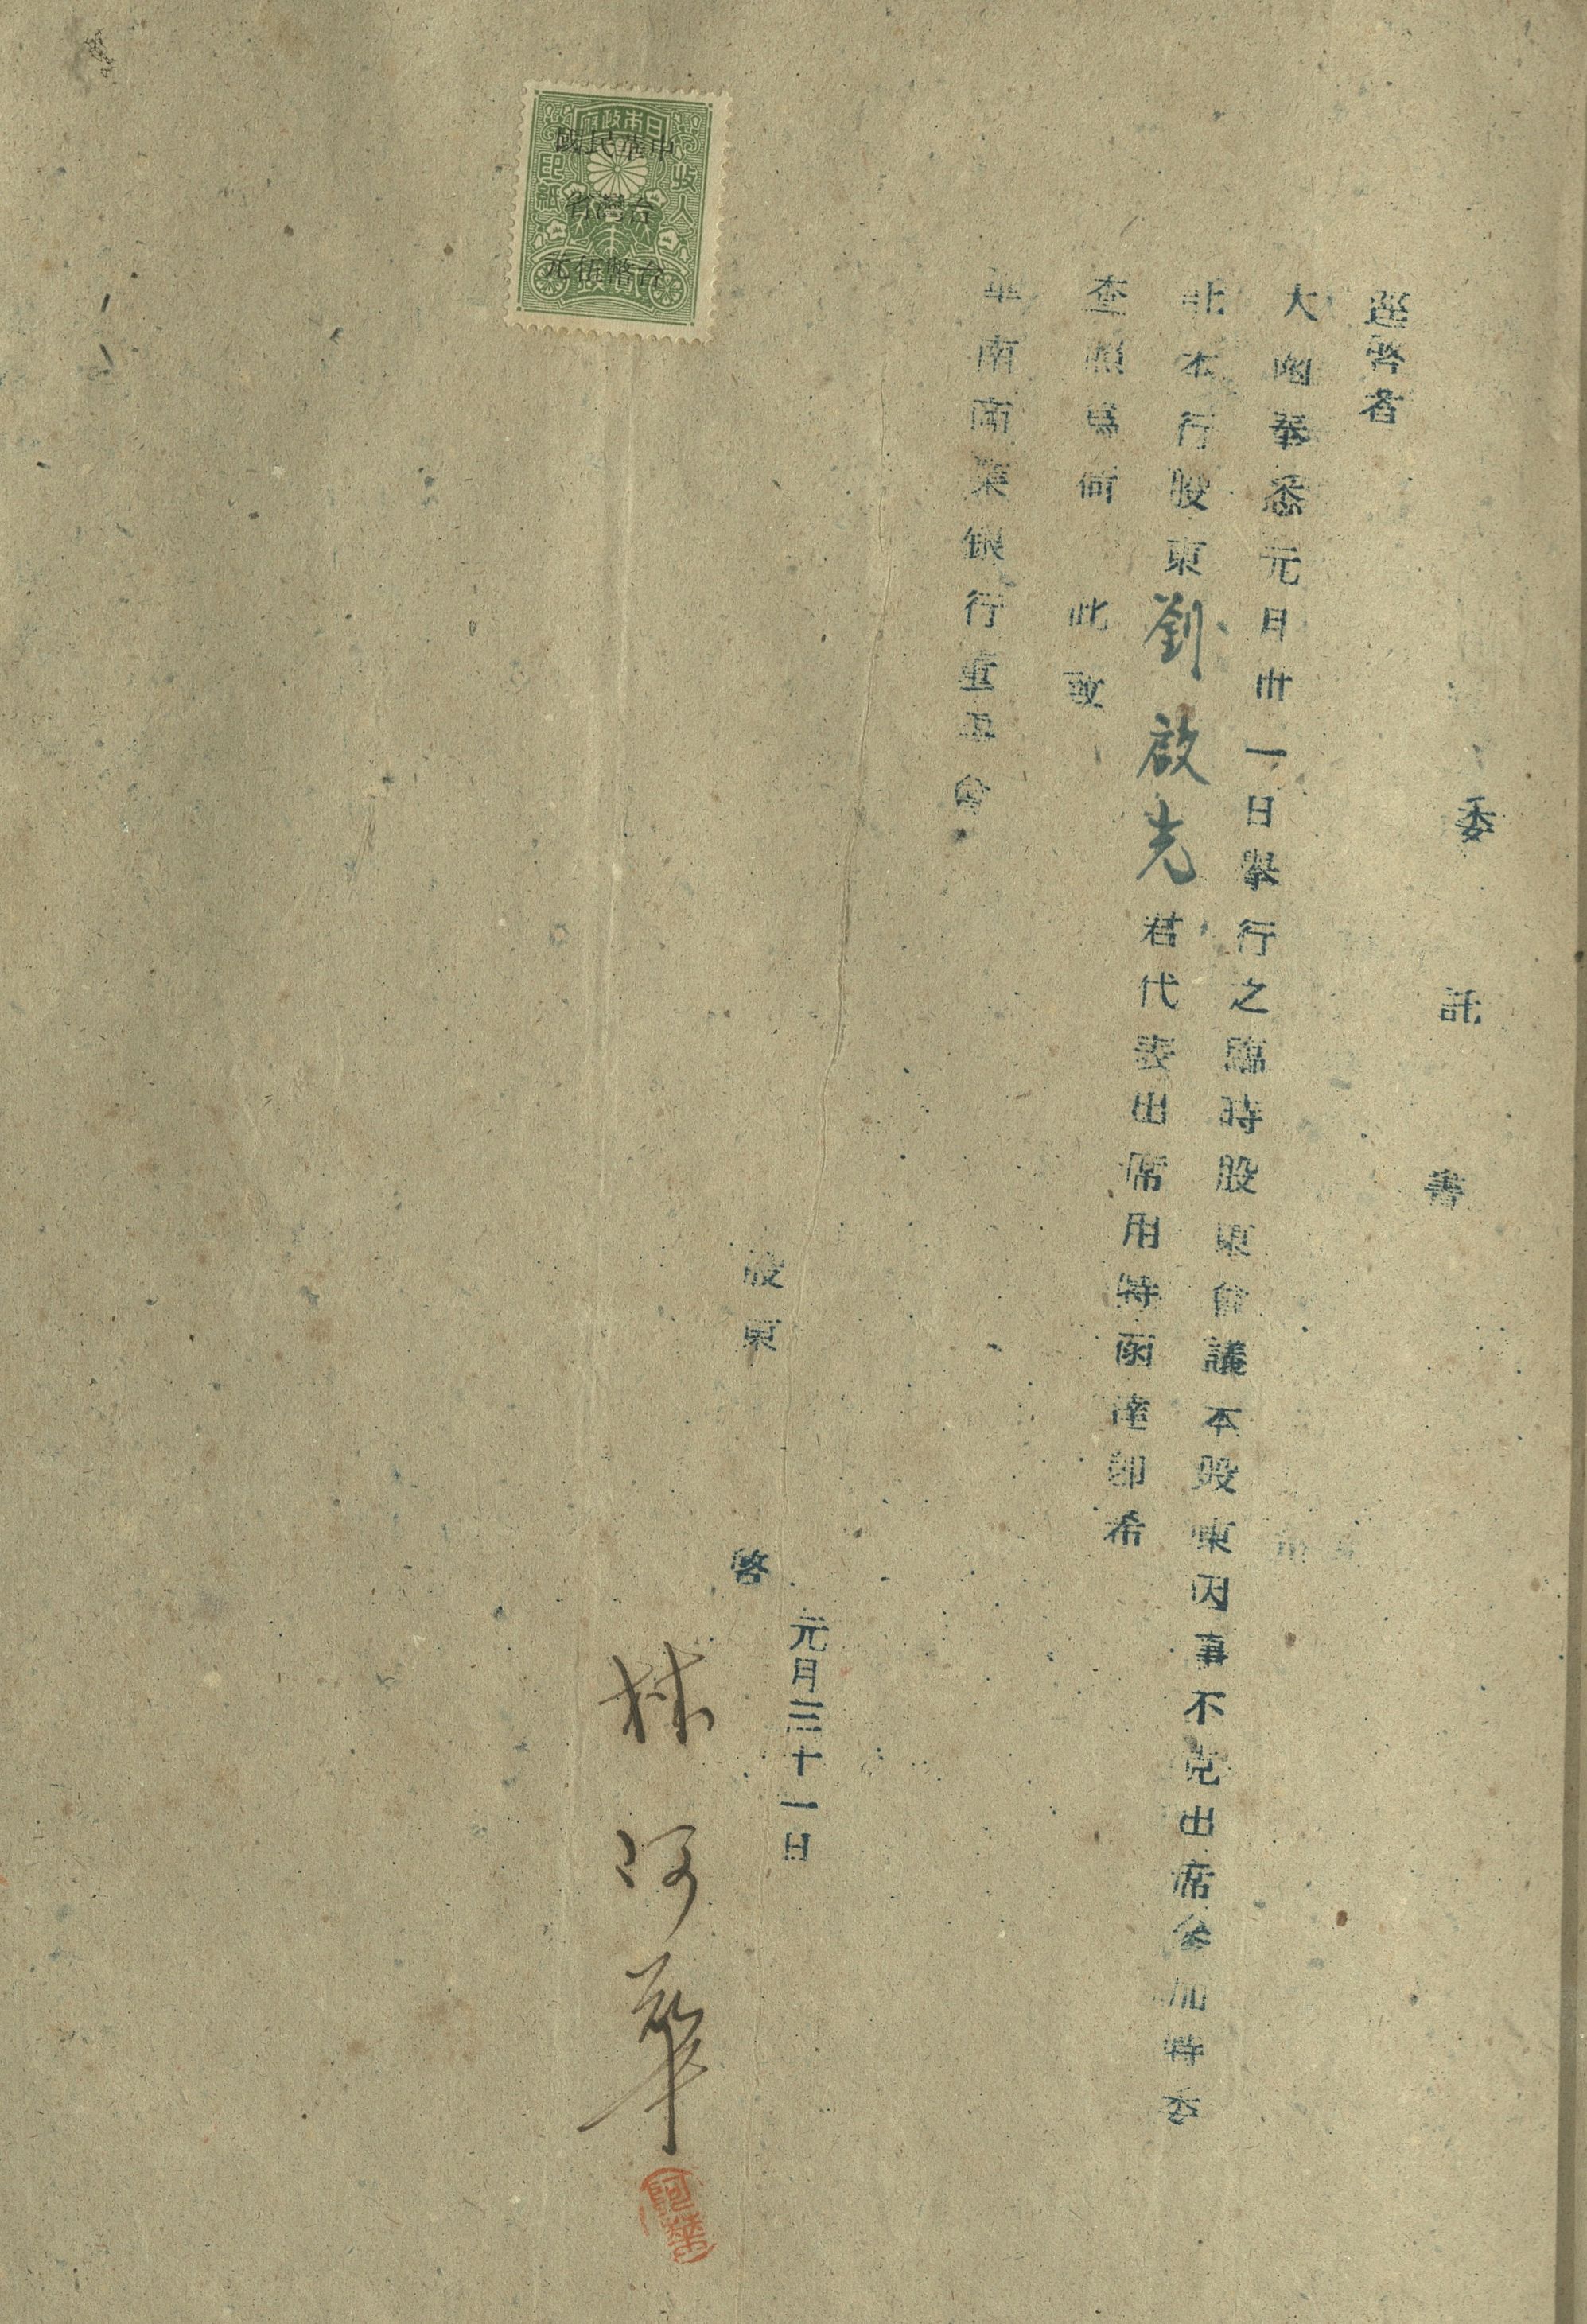 委託書
逕啓者
大函奉悉元月卅一日舉行之臨時股東會議本股東因事不克出席參加特委
託本行股東劉啟光君代表出席用特函達卽希
查照爲荷　此致
華南商業銀行董事會
元月三十一日
股東　啓
林阿華
阿華
日本政府
收入印紙
中華民國
台灣省
台幣伍元